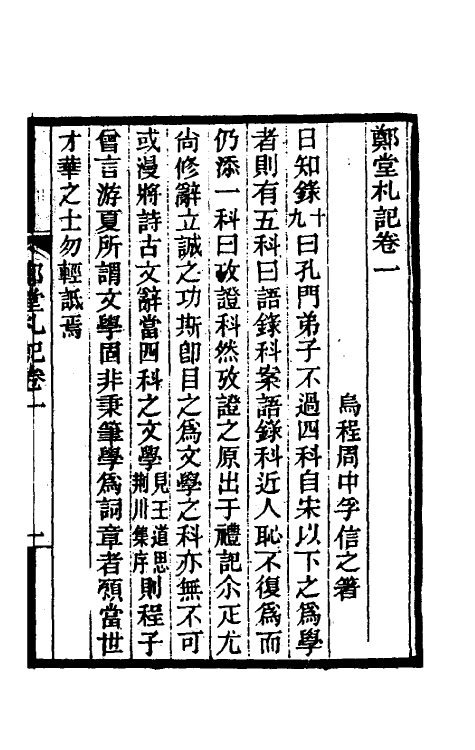 鄭堂札記卷一
烏程周中孚信之著
日知錄十九曰孔門弟子不過四科自宋以下之爲學
者則有五科曰語錄科案語錄科近人恥不復爲而
仍添一科曰攷證科然攷證之原出于禮記尒疋尤
尚修辭立誠之功斯卽目之爲文學之科亦無不可
或漫將詩古文辭當四科之文學見王道思荆川集序則程子
曾言游夏所謂文學固非秉筆學爲詞章者類當世
才華之士勿輕詆焉
鄭堂札記卷一
一